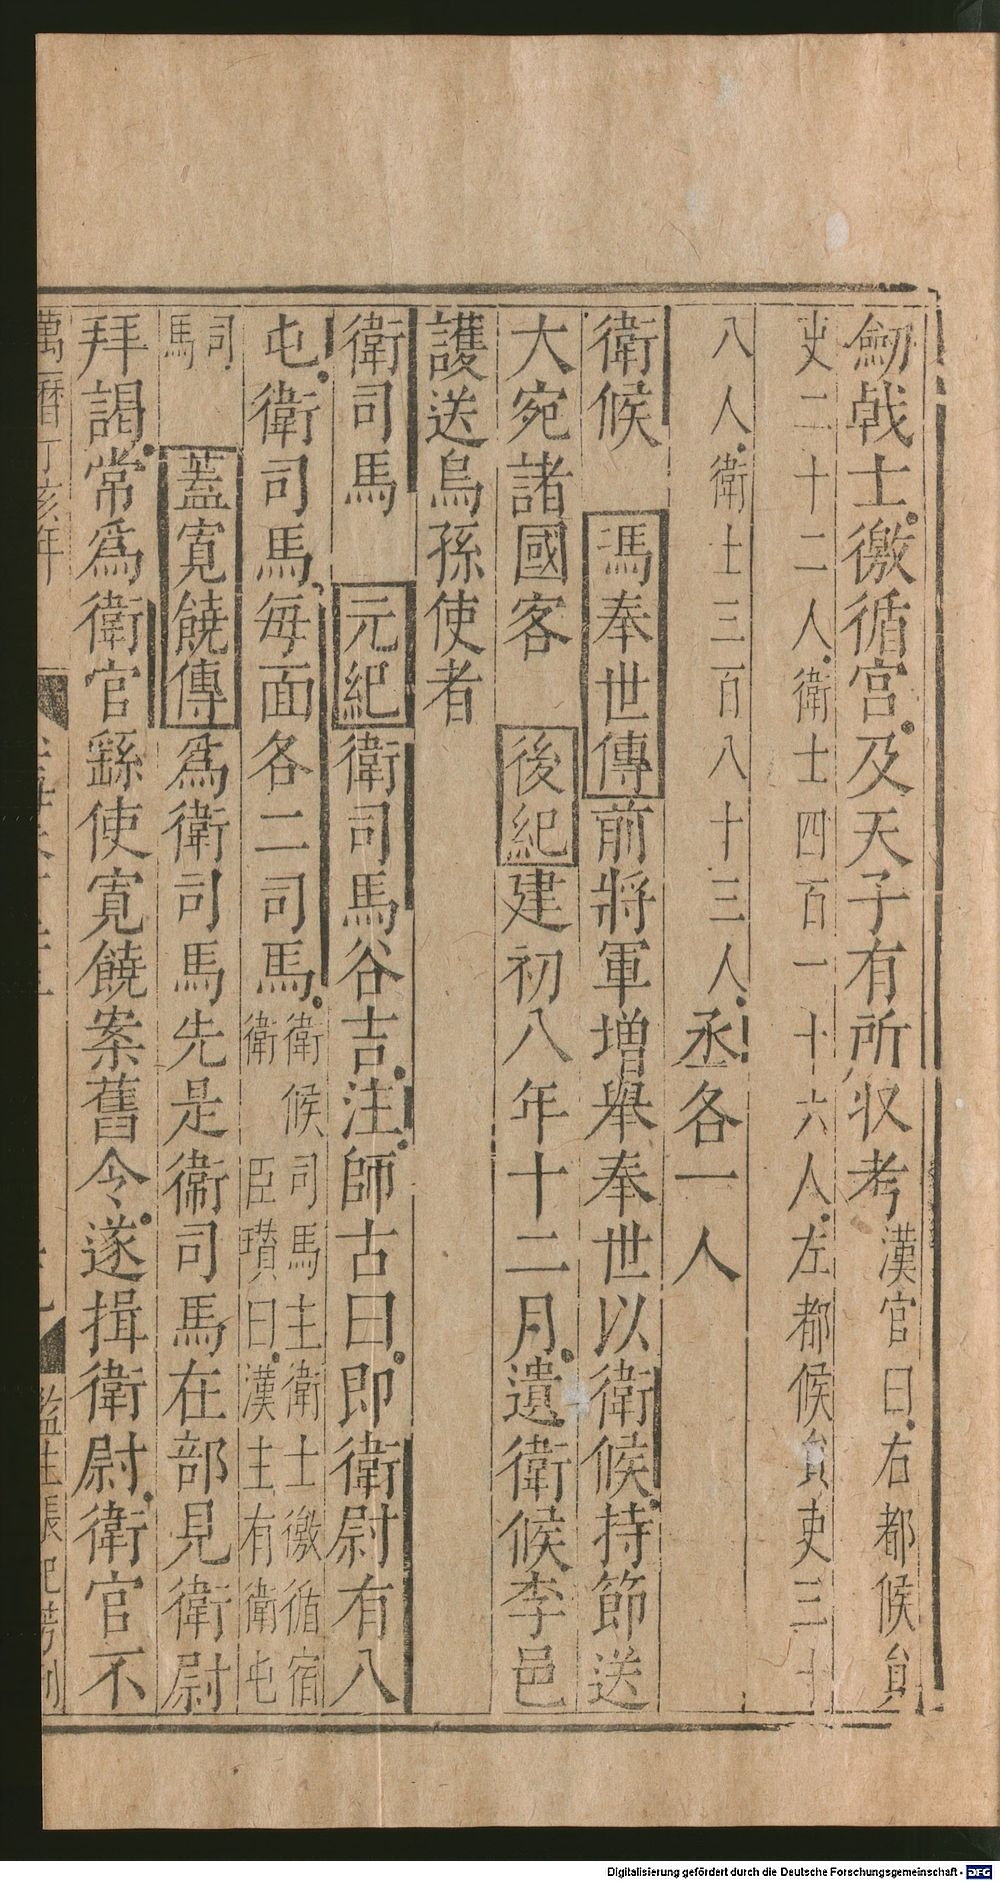 劒戟士徼循宫及天子有所收考漢官曰右都候貟
吏二十二人衛士四百一十六人左都候貟吏三十
八人衛士三百八十三人丞各一人
衛候　馮奉世傳前將軍增舉奉世以衛候持節送
大宛諸國客　後紀建初八年十二月遣衛候李邑
護送烏孫使者
衛司馬　元紀衛司馬谷吉注師古曰即衛尉有八
屯衛司馬每面各二司馬衛候司馬主衛士徼循宿
衛　臣瓚曰漢主有衛屯
司
馬　蓋寬饒傳爲衛司馬先是衛司馬在部見衛尉
拜謁常爲衛官繇使寬饒案舊令遂揖衛尉衛官不
萬曆丁亥年　監生張
Digitalisierung gefördert durch die Deutsche Forschungsgemeinschaft - DFG